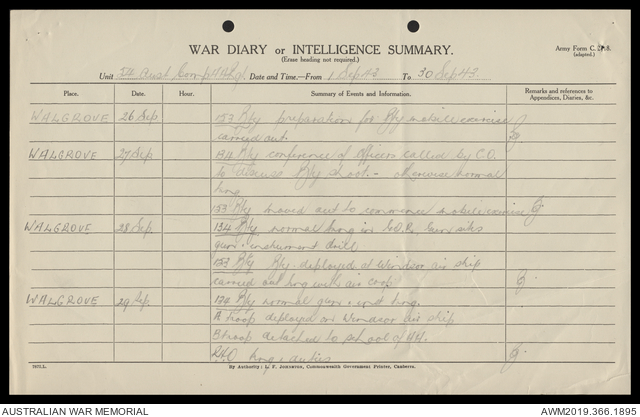 WAR DIARY or INTELLIGENCE SUMMARY.
(Erase heading not required.)
Army Form C.
(adapted.)
Unit 54 Aust Comp AA Regt Date and Time.—From 1 Sep 43 To 30 Sep 43.
Place. Date. Hour. Summary of Events and Information. Remarks and references to Appendices, Diaries, &c.
WALGROVE 26 Sep 153 Bty preparations for Bty mobile exercise
carried out.
WALGROVE 27 Sep 134 Bty conference of Officers called by C.O.
to discuss Bty shoot. - otherwise normal
trng
153 Bty moved out to commence mobile exercise
WALGROVE 28 Sep 134 Bty normal trng in G.O.R. Gun sites
gun & instrument drill
153 Bty Bty deployed at Windsor air strip
carried out trng with air coop.
WALGROVE 29 Sep 134 Bty normal gun & inst trng.
A troop deployed on Windsor air strip
B troop detached to school of
RHQ trng & duties
By Authority: L. F. Johnston, Commonwealth Government Printer, Canberra.
AUSTRALIAN WAR MEMORIAL
AWM2019.366.1895